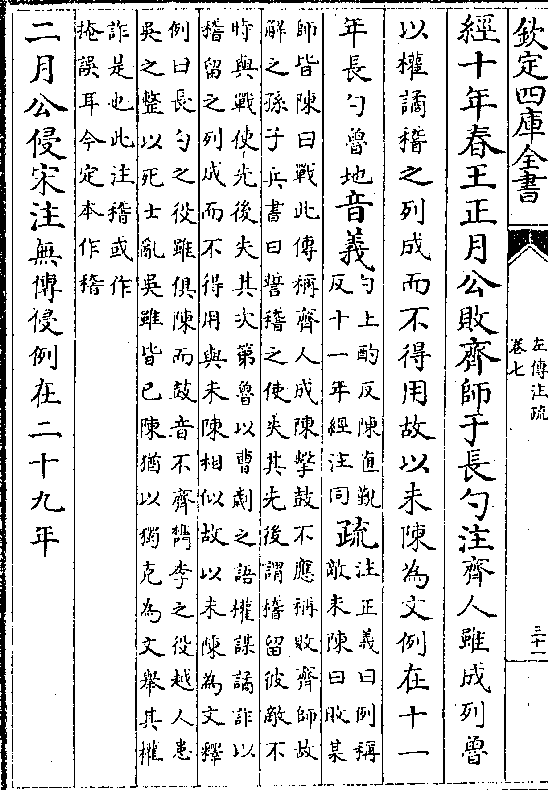 欽定四庫全書
左傳注疏
卷七
三十一
經十年春王正月公敗齊師于長勺注齊人雖成列魯
以權譎稽之列成而不得用故以未陳為文例在十一
年長勺魯地音義勺上酌反陳直覲
反十一年經注同疏注正義曰例稱
敵未陳曰敗某
師皆陳曰戰此傳稱齊人成陳擊鼓不應稱敗齊師故
解之孫子兵書曰誓稽之使失其先後謂稽留彼敵不
時與戰使先後失其次第魯以曹劌之語權謀譎詐以
稽留之列成而不得用與未陳相似故以未陳為文釋
例曰長勺之役雖俱陳而鼓音不齊檇李之役越人患
吳之整以死士亂吳雖皆已陳猶以獨克為文舉其權
詐是也此注稽或作
掩誤耳今定本作稽
二月公侵宋注無傳侵例在二十九年